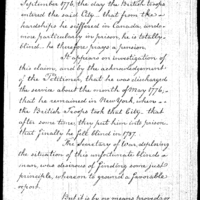 September 1776, the day the British troops
entered the said City - that from the
hardships he suffered in Canada, and
more particularly in prison, he is totally
blind - he therefore prays a pension.
It appears on investigation of
this claim, and by the acknowledgement
of the Petitioner, that he was discharged
the service about the month of May 1776,
that he remained in New York, when
the British Troops took that City - that
after some time they put him into prison,
that finally he fell blind in 1787.
The Secretary of War, deploring
the situation of this unfortunate blind
man, was desirous of finding some just
principle, whereon to ground a favorable
report.
But it is by no means